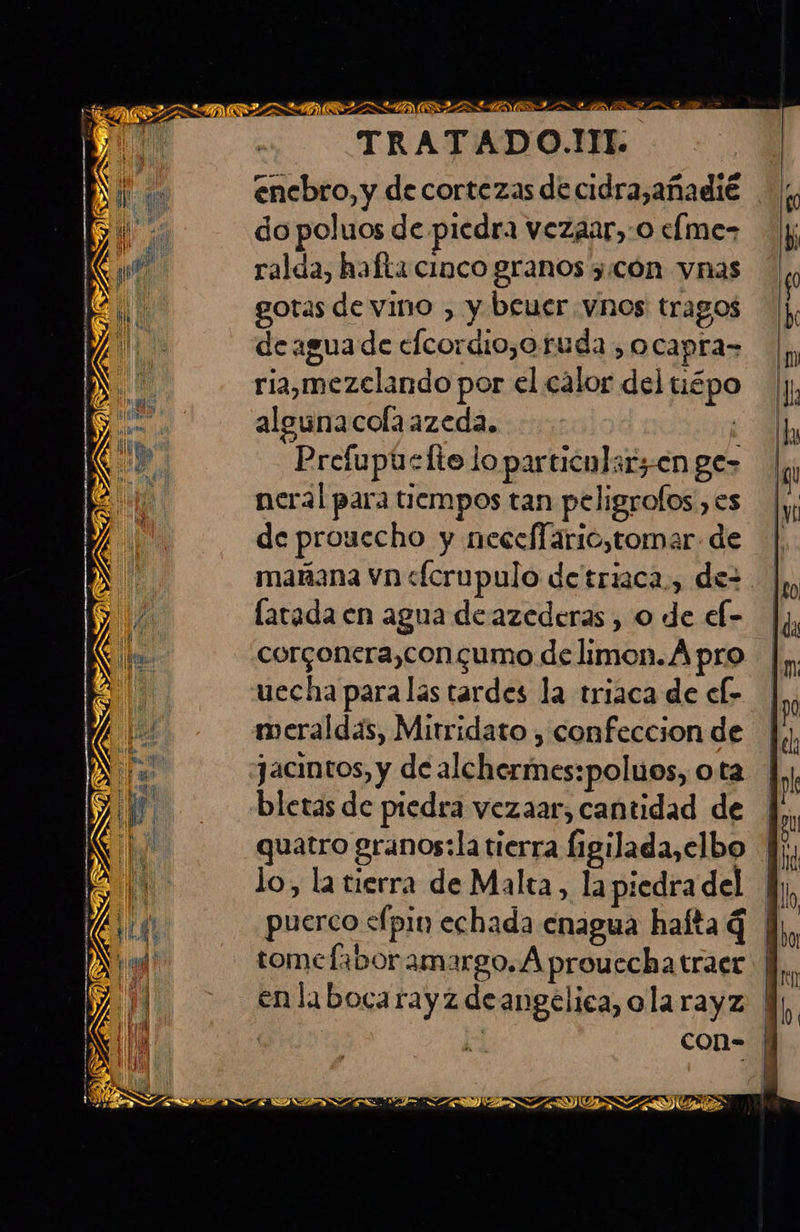 TRATADO.III.
enebro,y de cortezas de cidra,añadiē
do poluos de piedra vezaar, o eſme-
ralda, haſta cinco granos y con vnas
gotas de vino , y beuer vnos tragos
de agua de eſcordio,o ruda , o capra-
ria,mezclando por el calor del tiēpo
alguna coſa azeda.
Preſupueſto lo particular; en ge-
neral para tiempos tan peligroſos , es
de prouecho y neceſſario,tomar de
mañana vn eſcrupulo de triaca , de-
ſatada en agua de azederas , o de eſ-
corçonera,con çumo de limon. A pro
uecha para las tardes la triaca de eſ-
meraldas, Mitridato , confeccion de
jacintos, y de alchermes:poluos, o ta
bletas de piedra vezaar, cantidad de
quatro granos:la tierra ſigilada,elbo
lo, la tierra de Malta, la piedra del
puerco eſpin echada enagua haſta q̃
tome ſabor amargo. A prouecha traer
en la boca rayz de angelica, o la rayz
con-